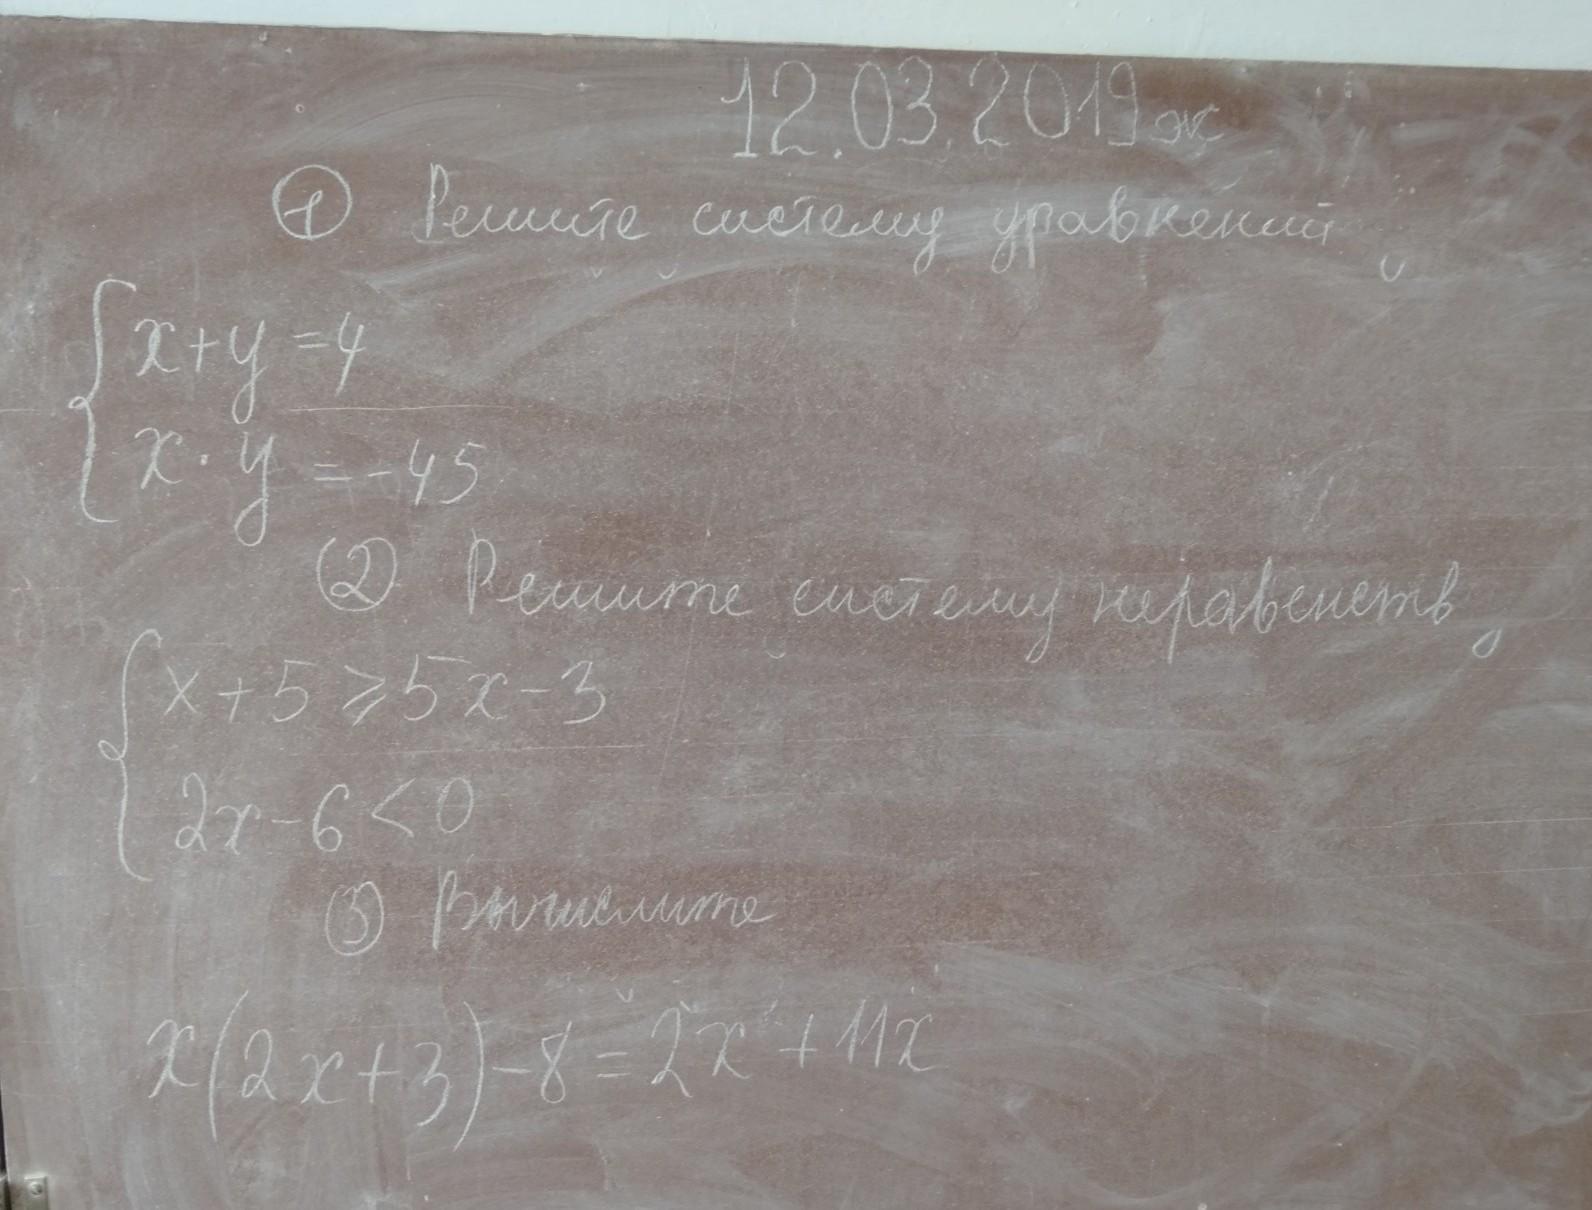 12.03.2019ж
① Решите систему уравнений
x+y=4
x·y=-45
② Решите систему неравенств,
x+5⩾5x-3
2x-6<0
③ Вычислите
x(2x+3)-8=2x+11x